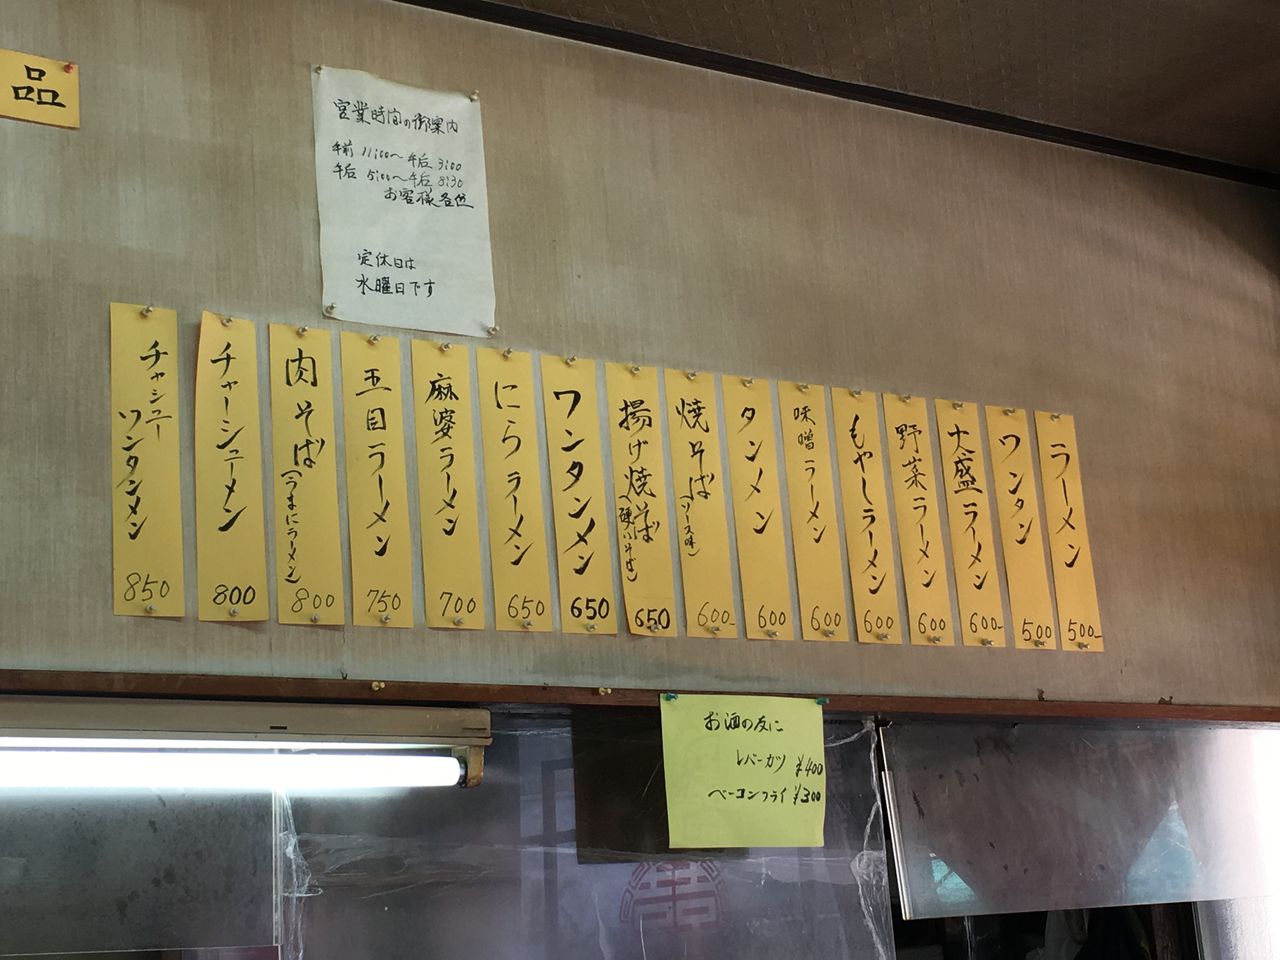 品
営業時間の御案内
午前 11:00〜午后 3:00
午后 5:00〜午后 8:30
お客様各位
定休日は
水曜日です
ラーメン 500-
ワンタン 500
大盛ラーメン 600-
野菜ラーメン 600
もやしラーメン 600
味噌ラーメン 600
タンメン 600
焼そば(ソース味) 600-
揚げ焼そば(硬いそば) 650
ワンタンメン 650
にらラーメン 650
麻婆ラーメン 700
五目ラーメン 750
肉そば(うまにラーメン) 800
チャーシューメン 800
チャシュー
ワンタンメン 850
お酒の友に
レバーカツ ¥400
ベーコンフライ ¥300